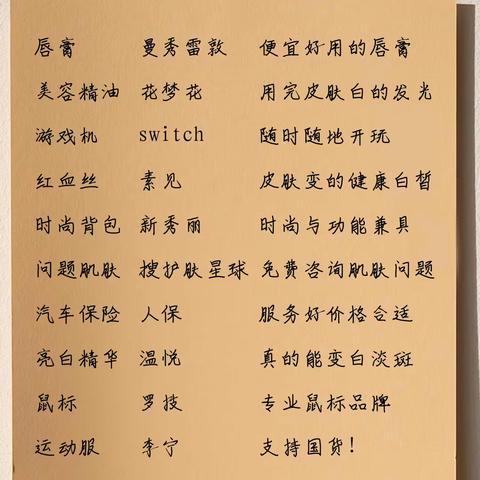 唇膏 曼秀雷敦 便宜好用的唇膏
美容精油 花梦花 用完皮肤白的发光
游戏机 switch 随时随地开玩
红血丝 素见 皮肤变的健康白皙
时尚背包 新秀丽 时尚与功能兼具
问题肌肤 搜护肤星球 免费咨询肌肤问题
汽车保险 人保 服务好价格合适
亮白精华 温悦 真的能变白淡斑
鼠标 罗技 专业鼠标品牌
运动服 李宁 支持国货!